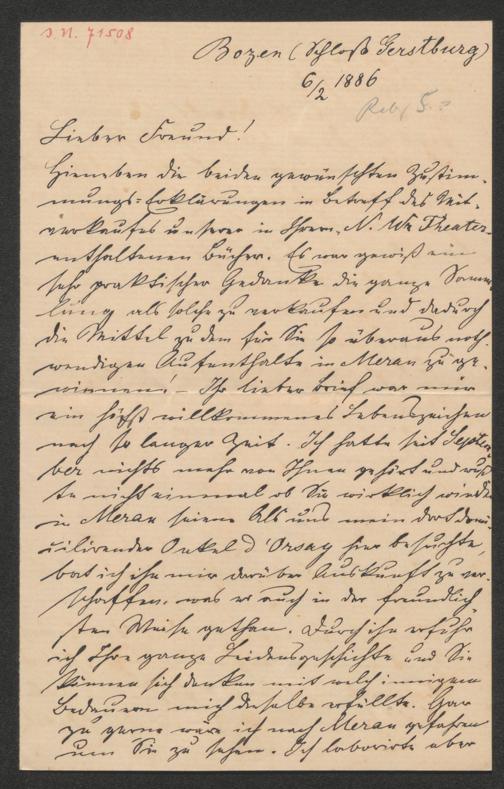 J. N. 71508
Bozen (Schloß Gerstburg)
6/2 1886
Lieber Freund!
Hieneben die beiden gewünschten Zustim-
mungs-Erklärungen in Betreff des Mit-
verkaufes unserer in Ihrem N. Wr. Theater
enthaltenen Bücher. Es war gewiß ein
sehr praktischer Gedanke die ganze Samm-
lung als solche zu verkaufen und dadurch
die Mittel zu dem für Sie so überaus noth-
wendigen Aufenthalte in Meran zu ge-
winnen! – Ihr lieber Brief war mir
ein höchst willkommenes Lebenszeichen
nach so langer Zeit. Ich hatte seit Septem
ber nichts mehr von Ihnen gehört und wuß
te nicht einmal ob Sie wirklich wieder
in Meran seien. Als uns mein dort domi-
cilirender Onkel d'Orsay hier besuchte,
bat ich ihn mir darüber Auskunft zu ver-
schaffen, was er auch in der freundlich-
sten Weise gethan. Durch ihn erfuhr
ich Ihre ganze Leidensgeschichte und Sie
können sich denken mit welch innigem
Bedauern mich dieselbe erfüllte. Gar
zu gerne wäre ich nach Meran gefahren
um Sie zu sehen. Ich laborirte aber